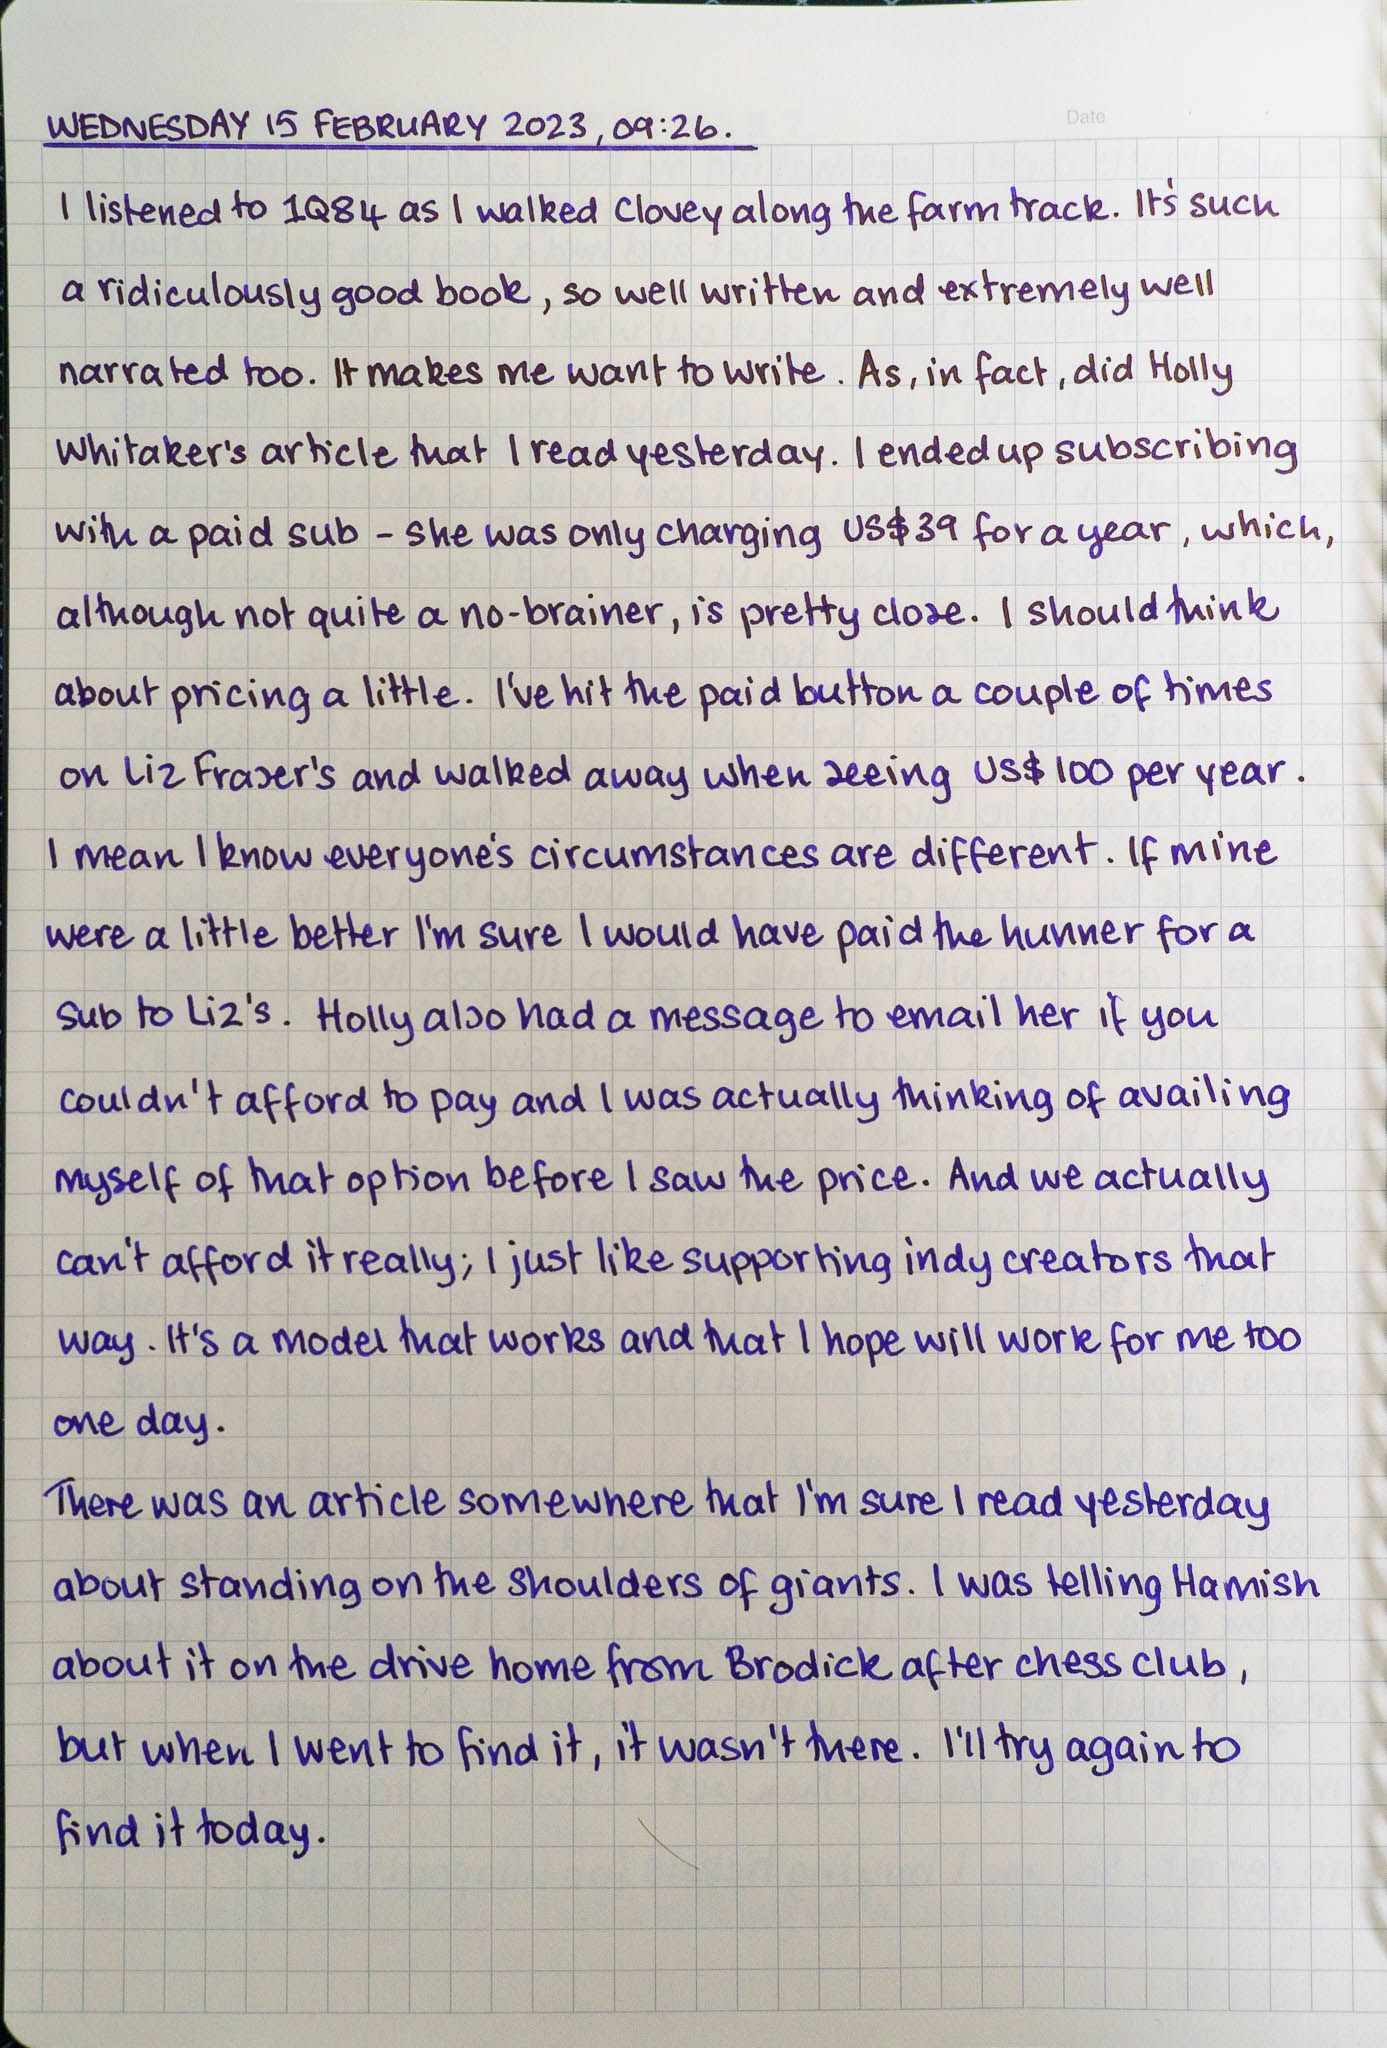 Date
WEDNESDAY 15 FEBRUARY 2023, 09:26.
I listened to 1Q84 as I walked Clovey along the farm track. It's such
a ridiculously good book, so well written and extremely well
narrated too. It makes me want to write. As, in fact, did Holly
Whitaker's article that I read yesterday. I ended up subscribing
with a paid sub - she was only charging US$39 for a year, which,
although not quite a no-brainer, is pretty close. I should think
about pricing a little. I've hit the paid button a couple of times
on Liz Fraser's and walked away when seeing US$100 per year.
I mean I know everyone's circumstances are different. If mine
were a little better I'm sure I would have paid the hunner for a
sub to Liz's. Holly also had a message to email her if you
couldn't afford to pay and I was actually thinking of availing
myself of that option before I saw the price. And we actually
can't afford it really; I just like supporting indy creators that
way. It's a model that works and that I hope will work for me too
one day.
There was an article somewhere that I'm sure I read yesterday
about standing on the shoulders of giants. I was telling Hamish
about it on the drive home from Brodick after chess club,
but when I went to find it, it wasn't there. I'll try again to
find it today.